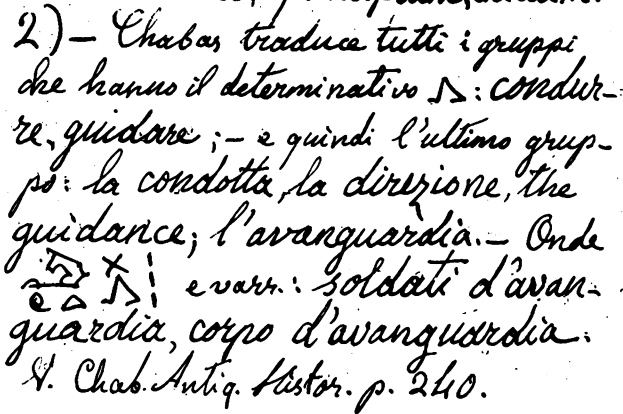 2) — Chabas traduce tutti i gruppi
che hanno il determinativo 𓂻: condur-
re, guidare; — e quindi l'ultimo grup-
po: la condotta, la direzione, the
guidance; l'avanguardia. — Onde
e varr.: soldati d'avan-
guardia, corpo d'avanguardia.
V. Chab. Antiq. Histor. p. 240.